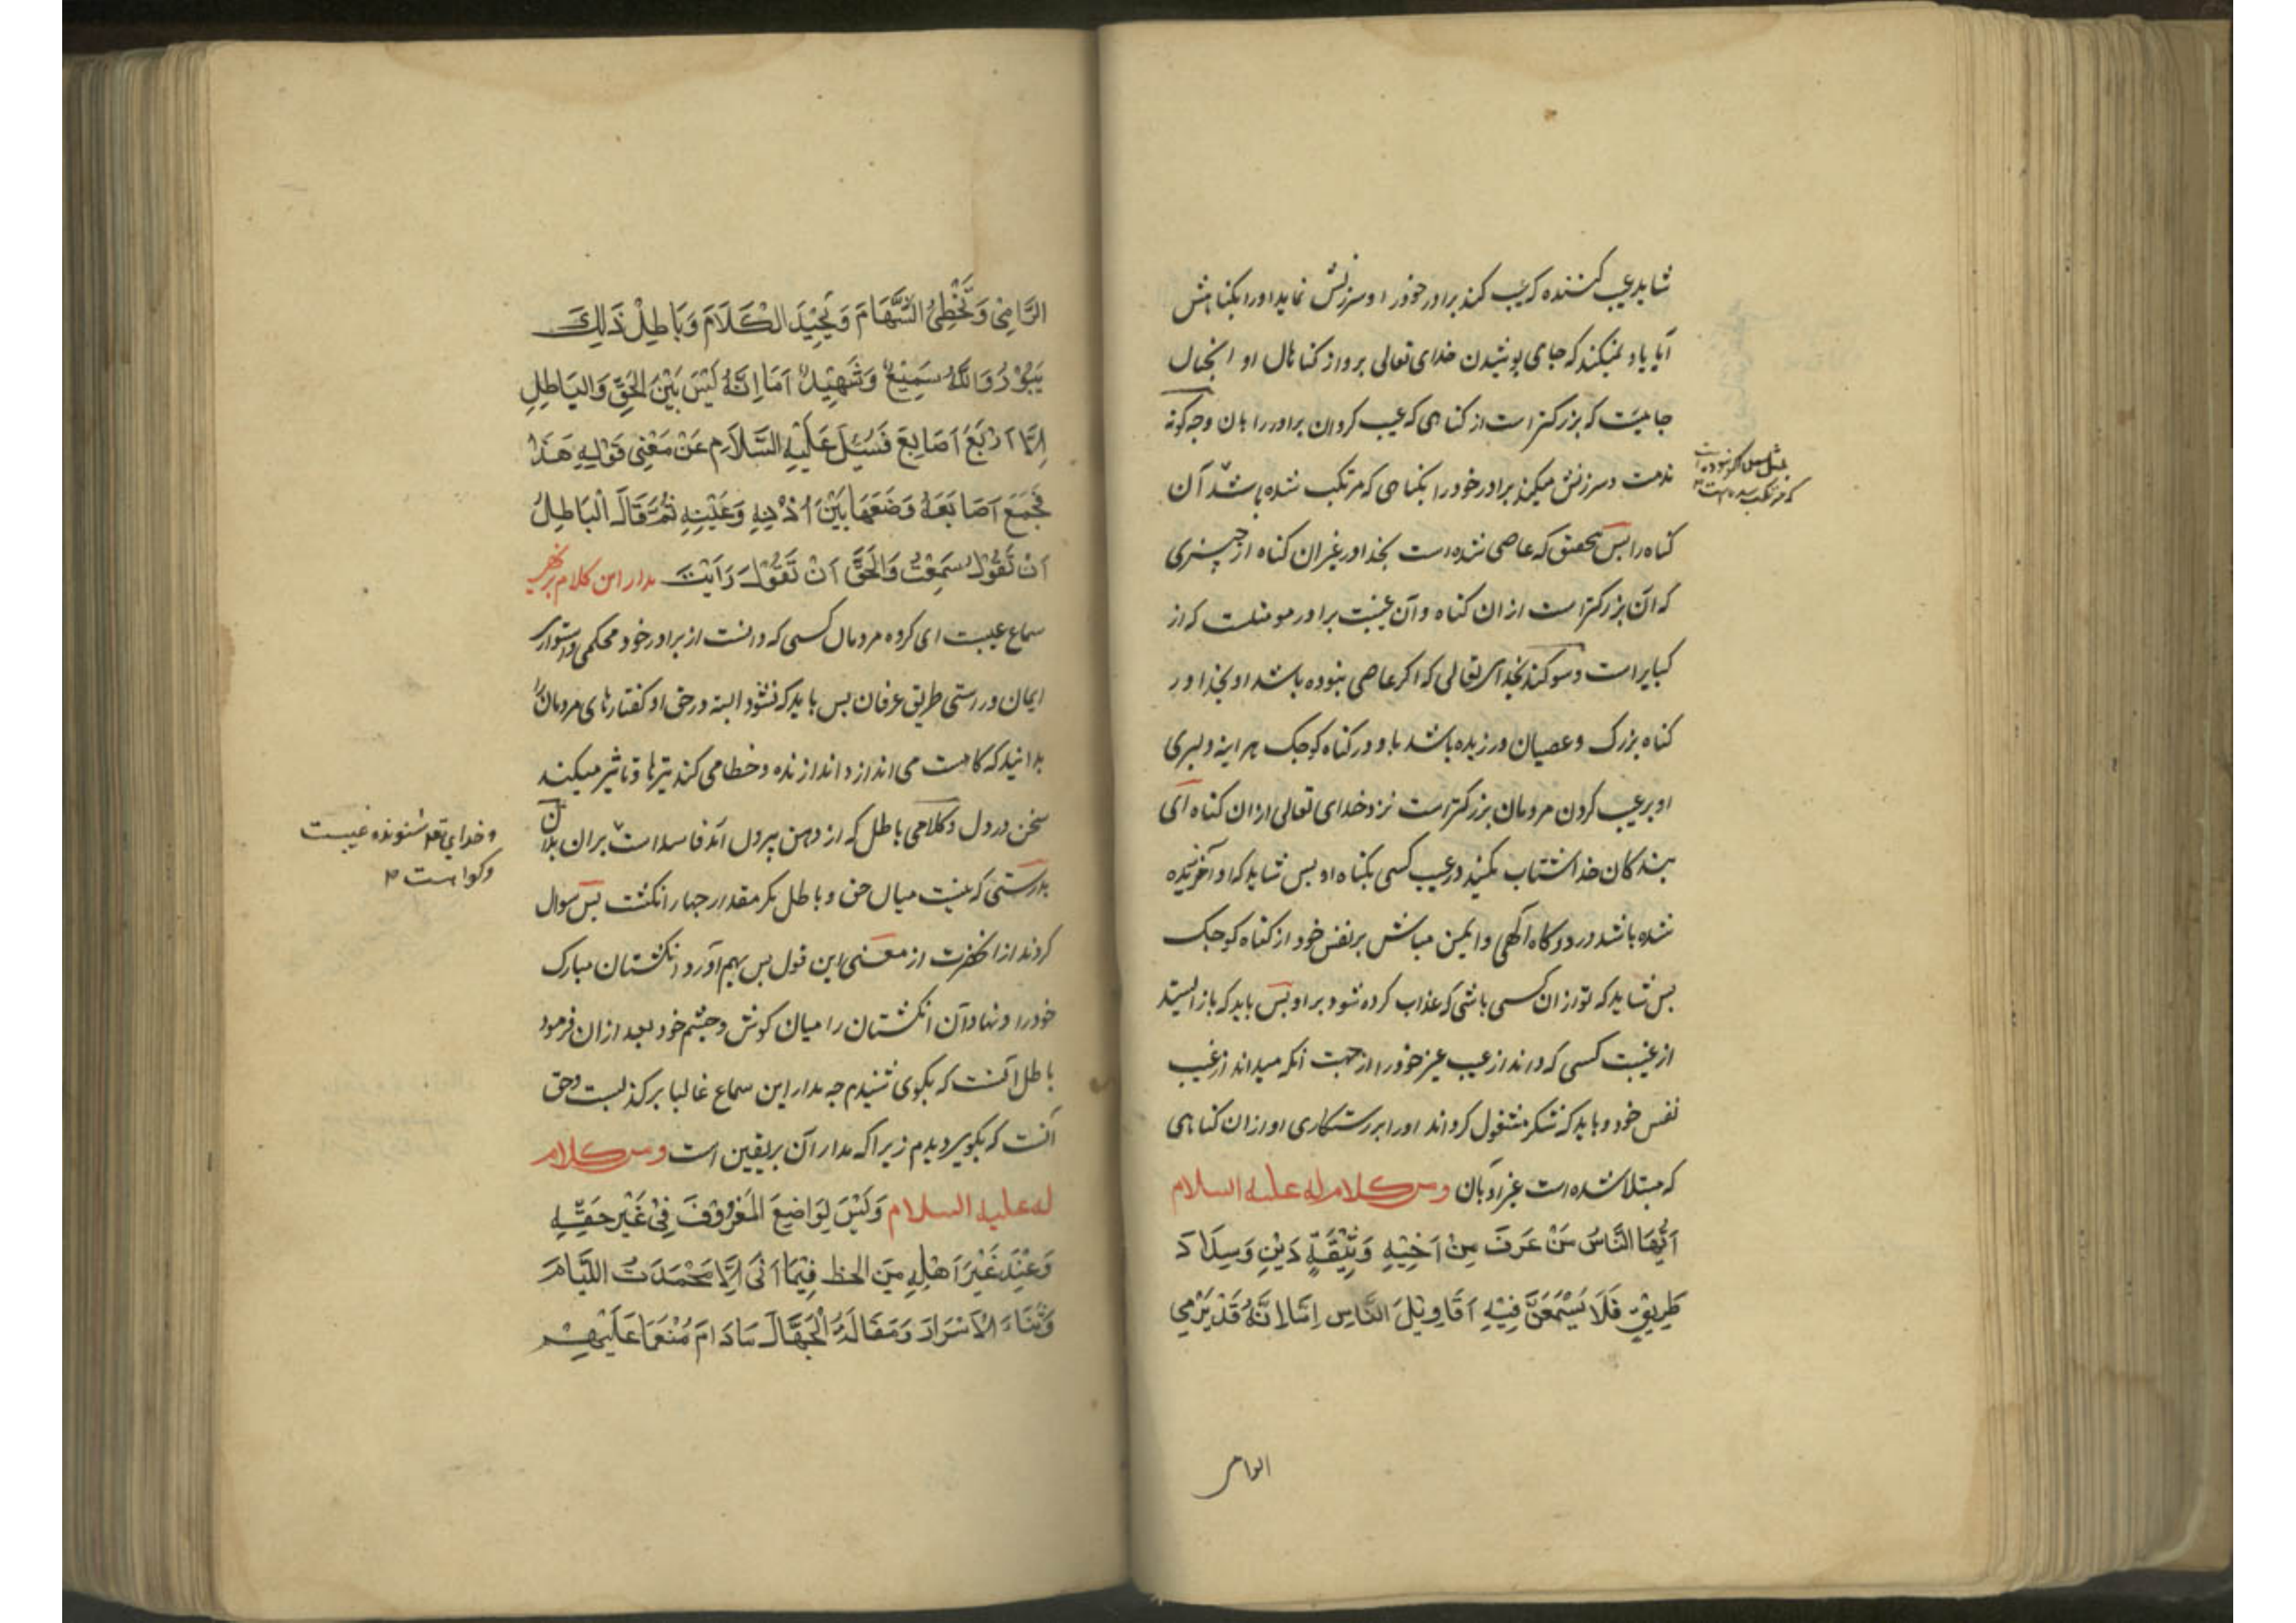 شاید عیب کننده که عیب کند برادر خود را و سرزنش نماید او را بکناهش
آیا یاد نمیکند که جای پوشیدن خدای تعالی برو از کناهان او انچنان
جاییست که بزرکتر است از کناهی که عیب کرد ان برادر را بان و چه کونه
مذمت و سرزنش میکند برادر خود را بکناهی که مرتکب شده باشد آن
کناه را پس بتحقیق که عاصی شده است بخدا در غیر ان کناه از چیزی
که آن بزرکتر است از ان کناه و آن غیبت برادر مومنست که از
کبایر است و سوکند بخدای تعالی که اکر عاصی نبوده باشد او بخدا در
کناه بزرک و عصیان ورزیده باشد باو در کناه کوچک هر اینه دلیری
او بر عیب کردن مردمان بزرکتر است نزد خدای تعالی از ان کناه ای
بندکان خدا شتاب مکنید در عیب کسی بکناه او پس شاید که او آمرزیده
شده باشد در درکاه آلهی و ایمن مباش بر نفس خود از کناه کوچک
پس شاید که تو از ان کسی باشی که عذاب کرده شود بر او پس باید که باز ایستد
از غیبت کسی که داند از عیب غیر خود را از جهت آنکه میداند از عیب
نفس خود و باید که شکر مشغول کرداند او را بر رستکاری او از ان کناهی
که مبتلا شده است غیر او بان ومن کلام له علیه السلام
اَیُّهَا النَّاسُ مَنْ عَرَفَ مِنْ اَخِیْهِ وَثِیْقَةَ دِیْنٍ وَسِدَادَ
طَرِیْقٍ فَلَا یَسْمَعَنَّ فِیْهِ اَقَاوِیْلَ النَّاسِ اَمَا اِنَّهُ قَدْ یَرْمِی
الرَّامِیْ وَتُخْطِئُ السِّهَامَ وَیُحِیْدَ الْکَلَامَ وَبَاطِلُ ذَلِکَ
یَبُوْرُ وَاللّٰهُ سَمِیْعٌ وَشَهِیْدٌ اَمَا اِنَّهُ لَیْسَ بَیْنَ الْحَقِّ وَالبَاطِلِ
اِلَّا اَرْبَعُ اَصَابِعَ فَسُئِلَ عَلَیْهِ السَّلَامِ عَنْ مَعْنِی قَوْلِهِ هَذَا
فَجَمَعَ اَصَابِعَهُ وَضَعَهَا بَیْنَ اُذْنِهِ وَعَیْنِهِ ثُمَّ قَالَ الْبَاطِلُ
اَنْ تَقُوْلَ سَمِعْتُ وَالْحَقُّ اَنْ تَقُوْلَ رَاَیْتُ مدار این کلام بر نهی
سماع غیبت ای کروه مردمان کسی که دانست از برادر خود محکمی و استواری
ایمان و رستی طریق عرفان پس باید که نشنود البته در حق او کفتارهای مردمان را
بدانید که کاهست می اندازد اندازنده و خطا می کند تیرها و تاثیر میکند
سخن در دل و کلامی باطل که از دهن بیرون آید فاسد است بران
بدرستی که نیست میان حق و باطل مکر مقدار چهار انکشت پس سوال
کردند از انحضرت از معنی این قول پس بهم آورد انکشتان مبارک
خود را و نهاد آن انکشتان را میان کوش و چشم خود بعد از ان فرمود
باطل آنست که بکوی شنیدم چه مدار این سماع غالبا بر کذبست و حق
آنست که بکوی دیدم زیرا که مدار آن بر یقین است ومن کلام
له علیه السلام وَلَیْسَ لِوَاضِعِ الْمَعْرُوْفِ فِیْ غَیْرِ حَقِّهِ
وَعِنْدَ غَیْرِ اَهْلِهِ مِنَ الحظ فِیْمَا اَتَی اِلَّا مَحْمَدَتُ اللِّئَامِ
وَثَنَاءُ الْاَشْرَارِ وَمَقَالَةُ الْجُهَّالِ مَادَامَ مُنْعِمًا عَلَیْهِمْ
و خدای تع شنونده غیبت
و کواه است